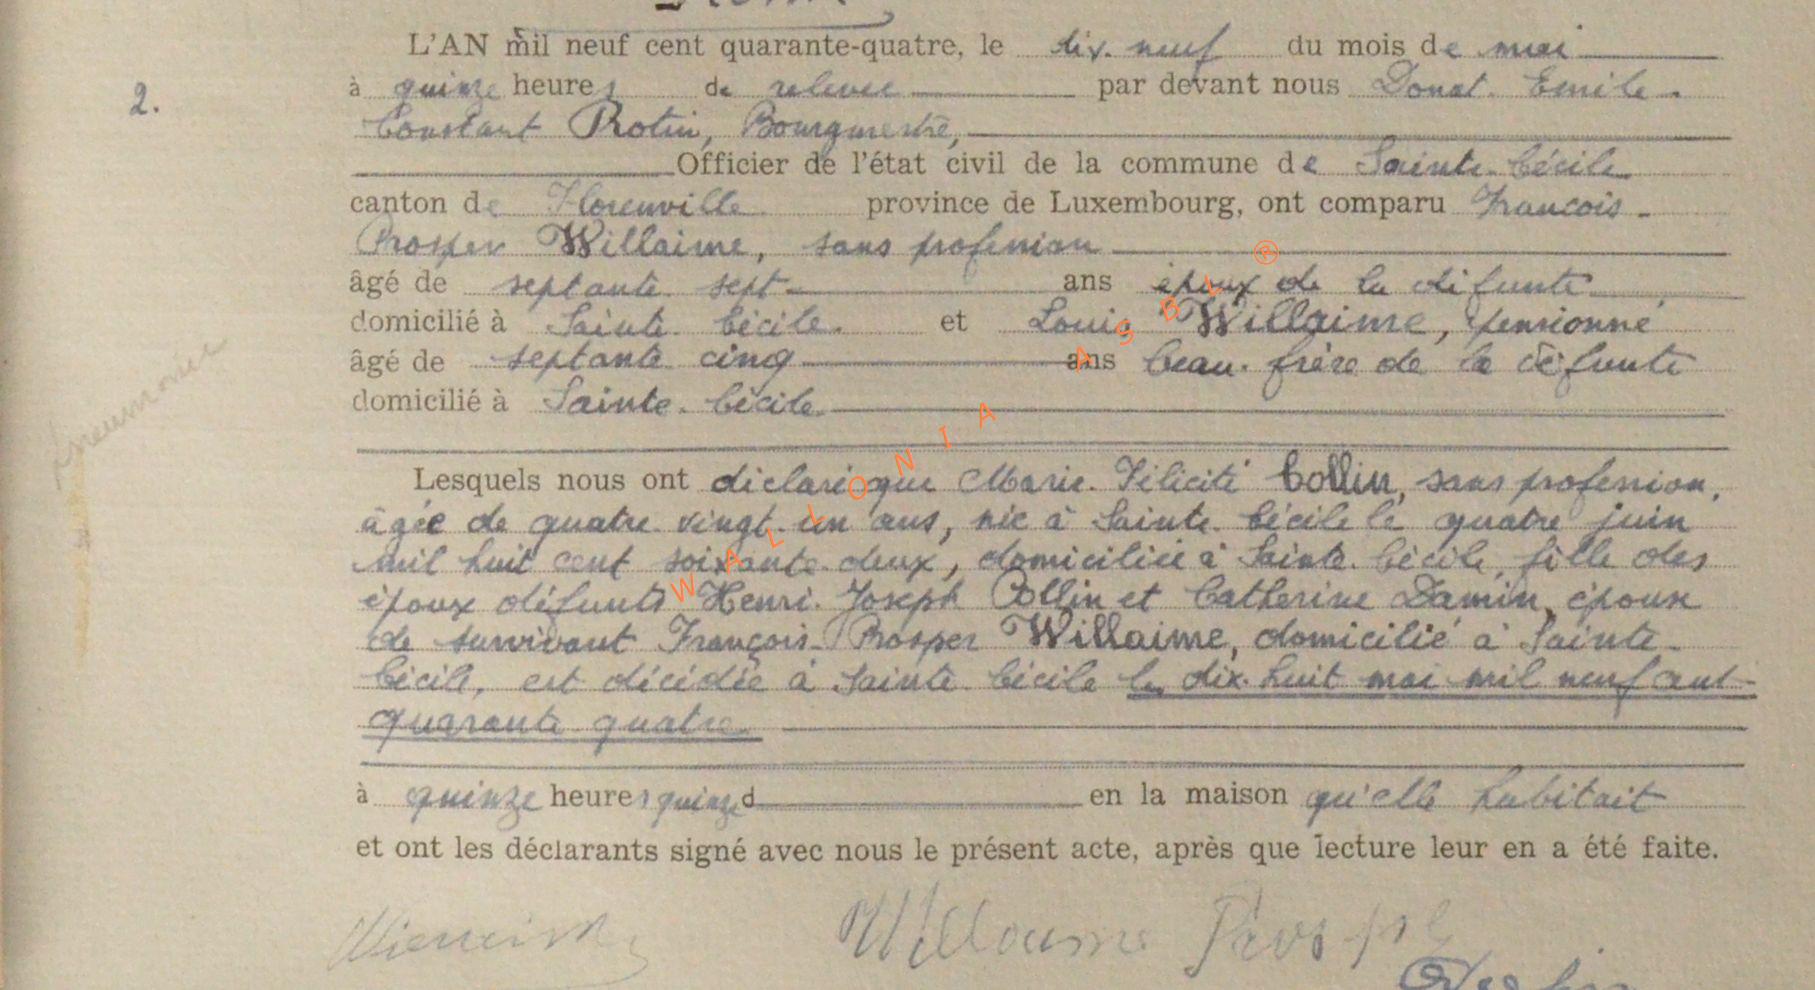 L'AN mil neuf cent quarante-quatre, le dix-neuf du mois de mai
2.
à quinze heures de relevée par devant nous Donat-Emile-
Constant Rotin, Bourgmestre,
Officier de l'état civil de la commune de Sainte-Cécile
canton de Florenville province de Luxembourg, ont comparu François-
Prosper Willaime, sans profession
âgé de septante-sept ans époux de la défunte
domicilié à Sainte-Cécile. et Louis Willaime, pensionné
âgé de septante cinq ans beau-frère de la défunte
domicilié à Sainte-Cécile
pneumonie
Lesquels nous ont déclaré que Marie-Félicité Collin, sans profession,
âgée de quatre-vingt-un ans, née à Sainte-Cécile le quatre juin
mil huit cent soixante-deux, domiciliée à Sainte-Cécile, fille des
époux défunts Henri-Joseph Collin et Catherine Damin, épouse
de survivant François-Prosper Willaime, domicilié à Sainte-
Cécile, est décédée à Sainte-Cécile le dix-huit mai mil neuf cent
quarante quatre
à quinze heures quinze d en la maison qu'elle habitait
et ont les déclarants signé avec nous le présent acte, après que lecture leur en a été faite.
Willaime Prosper
WALLONIA ASBL ®